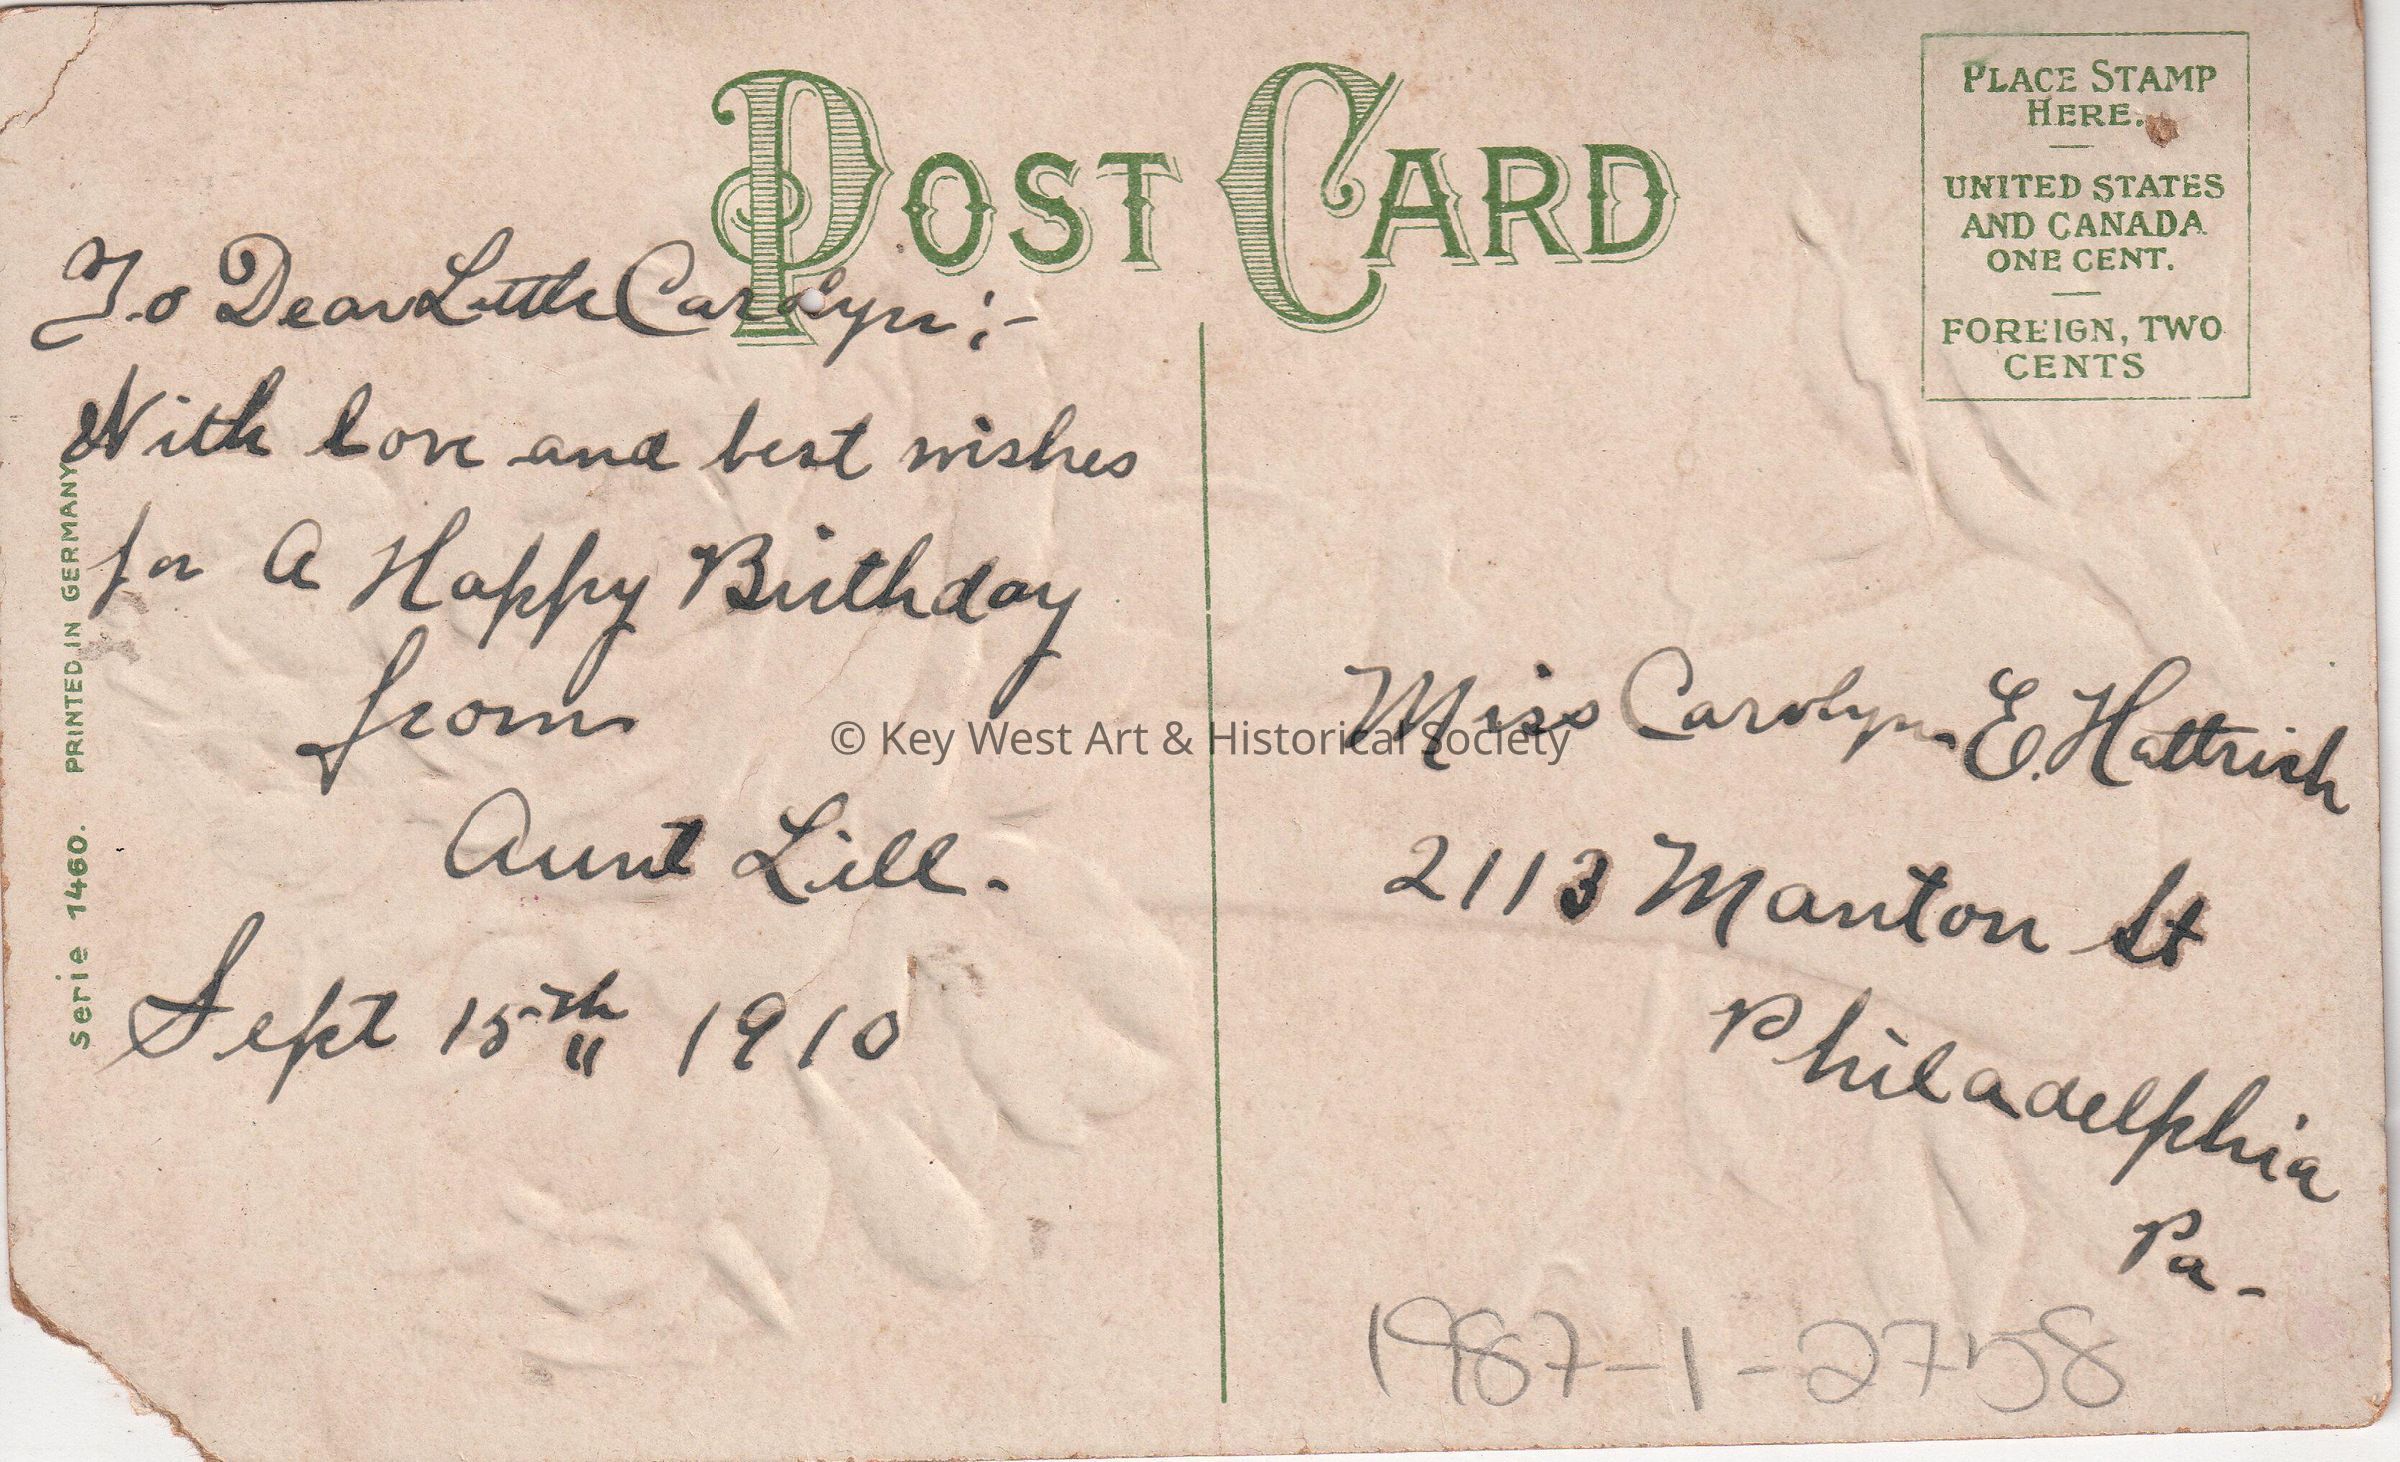 POST CARD
PLACE STAMP
HERE.
UNITED STATES
AND CANADA
ONE CENT.
FOREIGN, TWO
CENTS
To Dear Little Carolyn;-
With love and best wishes
for A Happy Birthday
from
Aunt Lill.
Sept 15th 1910
serie 1460. PRINTED IN GERMANY
© Key West Art & Historical Society
Miss Carolyn E. Hattrich
2113 Manton St
Philadelphia
Pa-
1987-1-2758